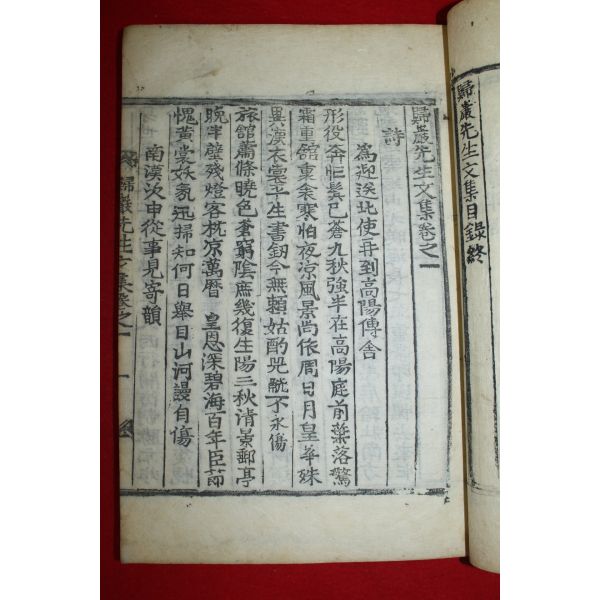 歸巖先生文集目錄終
歸巖先生文集卷之一
詩
爲迎送北使再到高陽傳舍
形役奔忙鬂已蒼九秋強半在高陽庭前葉落驚
霜重舘裏衾寒怕夜凉風景尚依周日月皇華殊
異漢衣裳平生書釰今無賴姑酌兕觥不永傷
旅舘蕭條曉色蒼窮陰庶幾復生陽三秋清景郵亭
晩半壁殘燈客枕凉萬曆 皇恩深碧海百年臣節
愧黃裳妖氛迅掃知何日舉目山河謾自傷
南漢次申從事見寄韻
歸巖先生文集卷之一 一